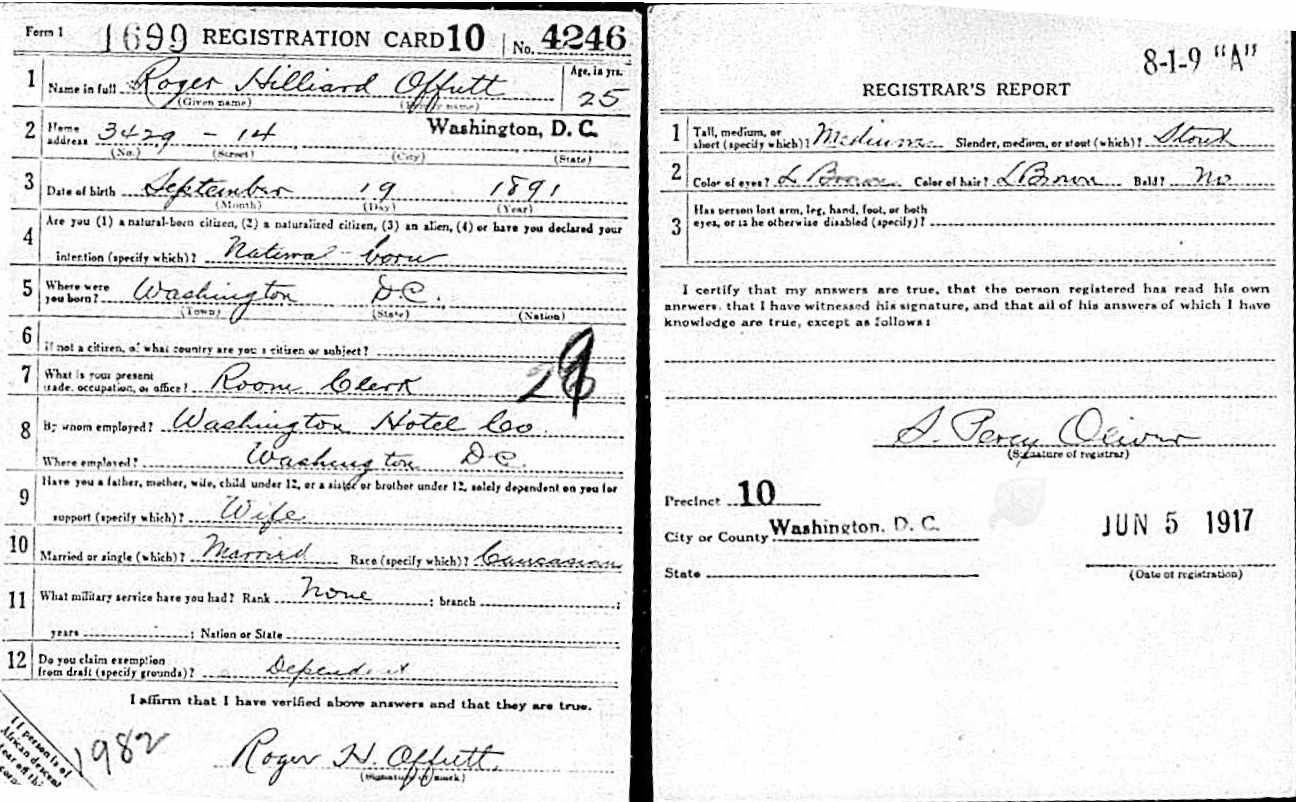 Form 1 1699 REGISTRATION CARD 10 No. 4246
1 Name in full Roger Hilliard Offutt Age, in yrs. 25
(Given name) (Family name)
2 Home address 3429 - 14 Washington, D. C.
(No.) (Street) (City) (State)
3 Date of birth September 19 1891
(Month) (Day) (Year)
4 Are you (1) a natural-born citizen, (2) a naturalized citizen, (3) an alien, (4) or have you declared your
intention (specify which)? Natural-born
5 Where were you born? Washington D.C.
(Town) (State) (Nation)
6 If not a citizen, of what country are you a citizen or subject?
7 What is your present trade, occupation, or office? Room Clerk
8 By whom employed? Washington Hotel Co.
Where employed? Washington D.C.
9 Have you a father, mother, wife, child under 12, or a sister or brother under 12, solely dependent on you for
support (specify which)? Wife
10 Married or single (which)? Married Race (specify which)? Caucasian
11 What military service have you had? Rank None ; branch ;
years ; Nation or State
12 Do you claim exemption from draft (specify grounds)? Dependent
I affirm that I have verified above answers and that they are true.
If person is of
African descent
tear off this
corner
1982
Roger H. Offutt.
(Signature or mark)
8-1-9 "A"
REGISTRAR'S REPORT
1 Tall, medium, or short (specify which)? Medium Slender, medium, or stout (which)? Stout
2 Color of eyes? L Brown Color of hair? L Brown Bald? No
3 Has person lost arm, leg, hand, foot, or both
eyes, or is he otherwise disabled (specify)?
I certify that my answers are true, that the person registered has read his own
answers, that I have witnessed his signature, and that all of his answers of which I have
knowledge are true, except as follows:
S. Percy Oliver
(Signature of registrar)
Precinct 10
City or County Washington, D. C.
JUN 5 1917
State
(Date of registration)